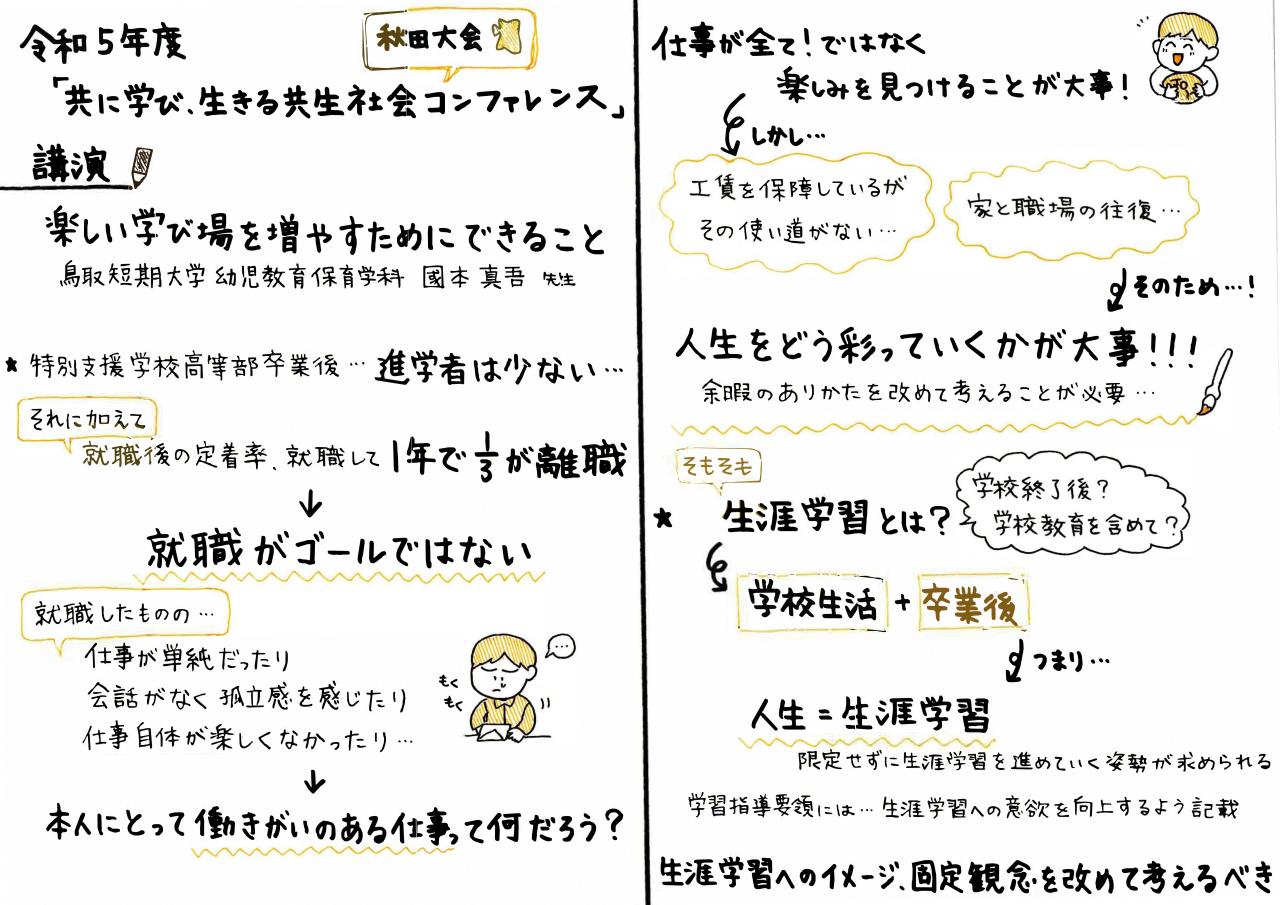 令和5年度
秋田大会
「共に学び、生きる共生社会コンファレンス」
講演
楽しい学び場を増やすためにできること
鳥取短期大学 幼児教育保育学科 國本 真吾 先生
★ 特別支援学校高等部卒業後… 進学者は少ない…
それに加えて
就職後の定着率、就職して1年で1/3が離職
↓
就職がゴールではない
就職したものの…
仕事が単純だったり
会話がなく孤立感を感じたり
仕事自体が楽しくなかったり…
もく
もく
↓
本人にとって働きがいのある仕事って何だろう?
仕事が全て!ではなく
楽しみを見つけることが大事!
しかし…
工賃を保障しているが
その使い道がない…
家と職場の往復…
そのため…!
人生をどう彩っていくかが大事!!!
余暇のありかたを改めて考えることが必要…
そもそも
★ 生涯学習とは?
学校終了後?
学校教育を含めて?
学校生活 + 卒業後
つまり…
人生=生涯学習
限定せずに生涯学習を進めていく姿勢が求められる
学習指導要領には…生涯学習への意欲を向上するよう記載
生涯学習へのイメージ、固定観念を改めて考えるべき